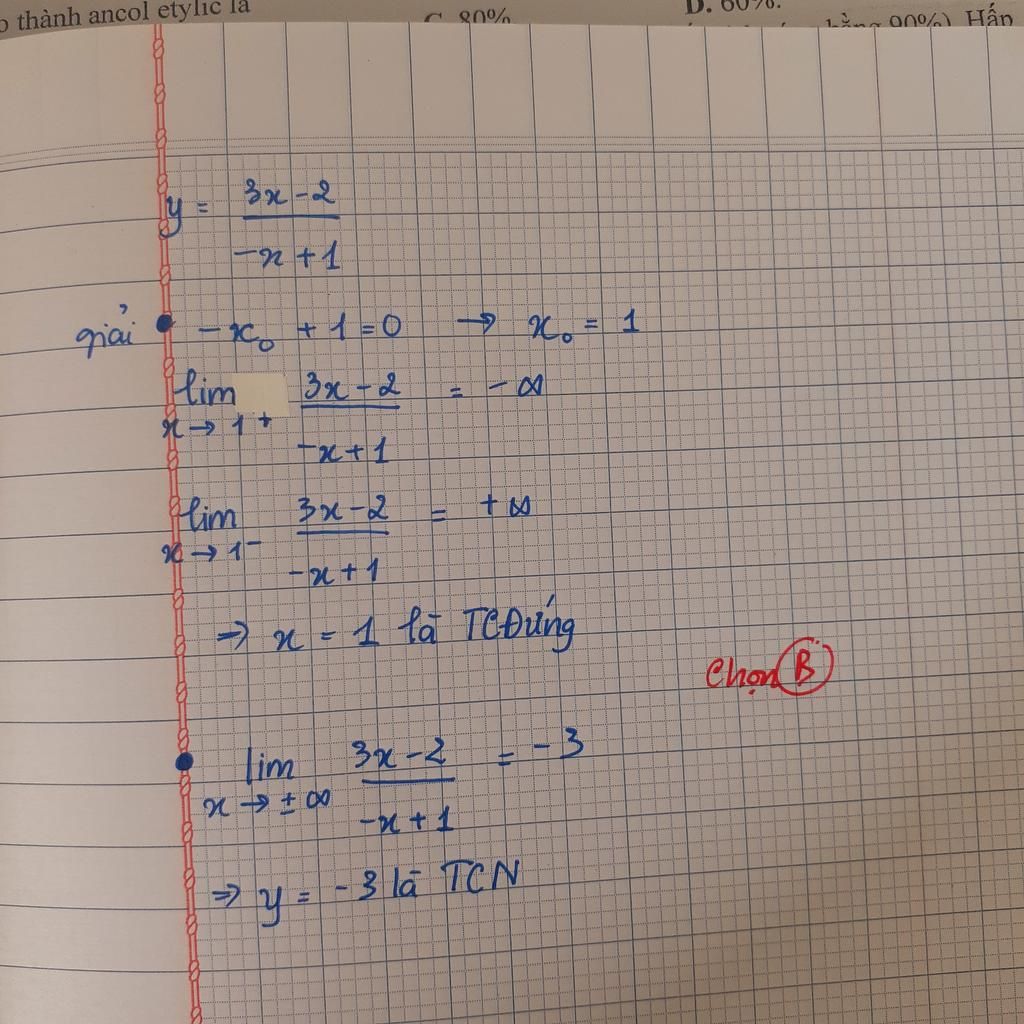 o thành ancol etylic là
C. 80%
D. 60%.
bằng 90%) Hấp
y = 3x - 2
-x + 1
giải - x₀ + 1 = 0 → x₀ = 1
lim 3x - 2 = - ∞
x → 1⁺ -x + 1
lim 3x - 2 = + ∞
x → 1⁻ -x + 1
⇒ x = 1 là TCĐứng
Chọn B
lim 3x - 2 = - 3
x → ± ∞ -x + 1
⇒ y = - 3 là TCN